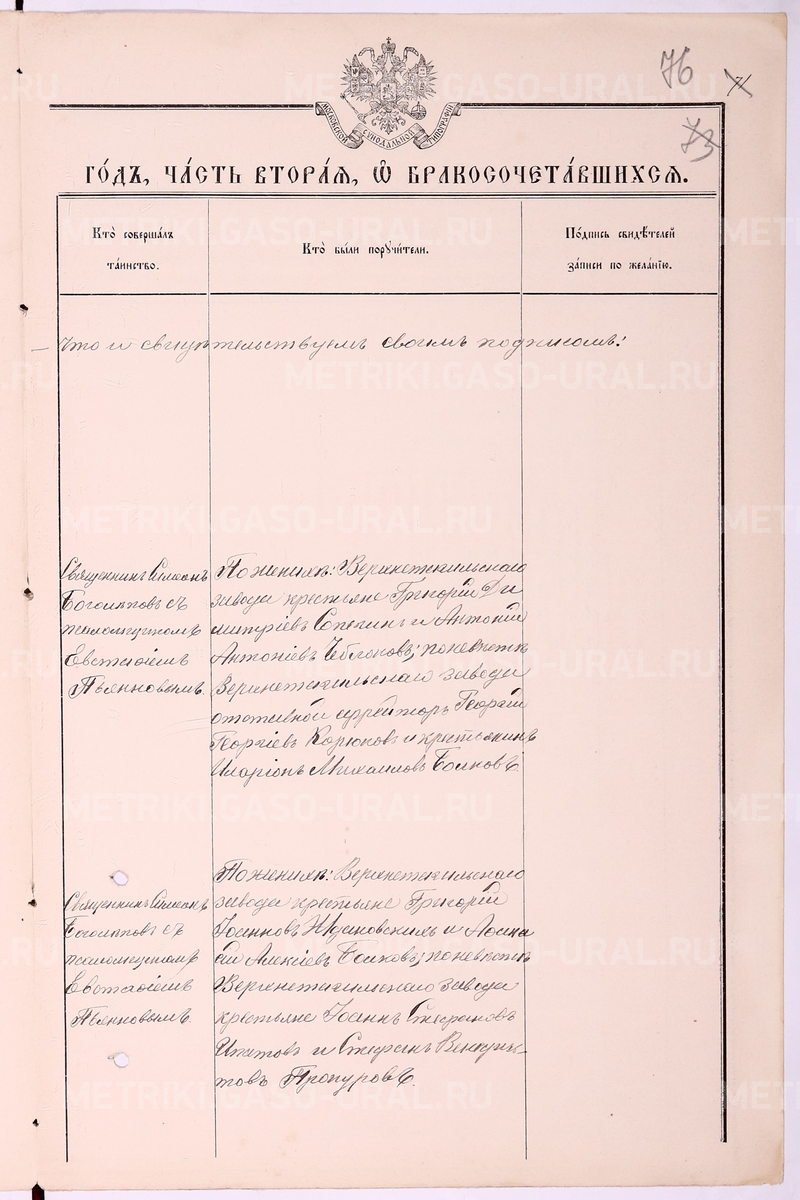 76
МОСКОВСКОЙ СИНОДАЛЬНОЙ ТИПОГРАФІИ
73
ГО́ДЪ, ЧА́СТЬ ВТОРА́Я, Ѿ БРАКОСОЧЕТА́ВШИХСѦ.
Кто̀ соверша́лъ
та́инство.
Кто̀ бы́ли порꙋчи́тели.
По́дпись свидѣ́телей
за́писи по жела́нїю.
что и свидѣтельствуемъ своимъ подписомъ:
Священникъ Симеонъ
Боголѣповъ съ
псаломщикомъ
Евстаѳіемъ
Пьянковымъ.
По женихѣ: Верхнетагильскаго
завода крестьяне Григорій Ди
митріевъ и Антоній
Антоніевъ по невѣстѣ
Верхнетагильскаго завода
ефрейторъ Георгій
Георгіевъ Корюковъ и крестьянинъ
Иларіонъ Михаиловъ
Священникъ Симеонъ
Боголѣповъ съ
псаломщикомъ
Евстаѳіемъ
Пьянковымъ.
По женихѣ: Верхнетагильскаго
завода крестьяне Григорій
Іоанновъ и Аѳана
сій Алексіевъ по невѣстѣ
Верхнетагильскаго завода
крестьяне Іоаннъ Стефановъ
и Стефанъ
METRIKI.GASO-URAL.RU